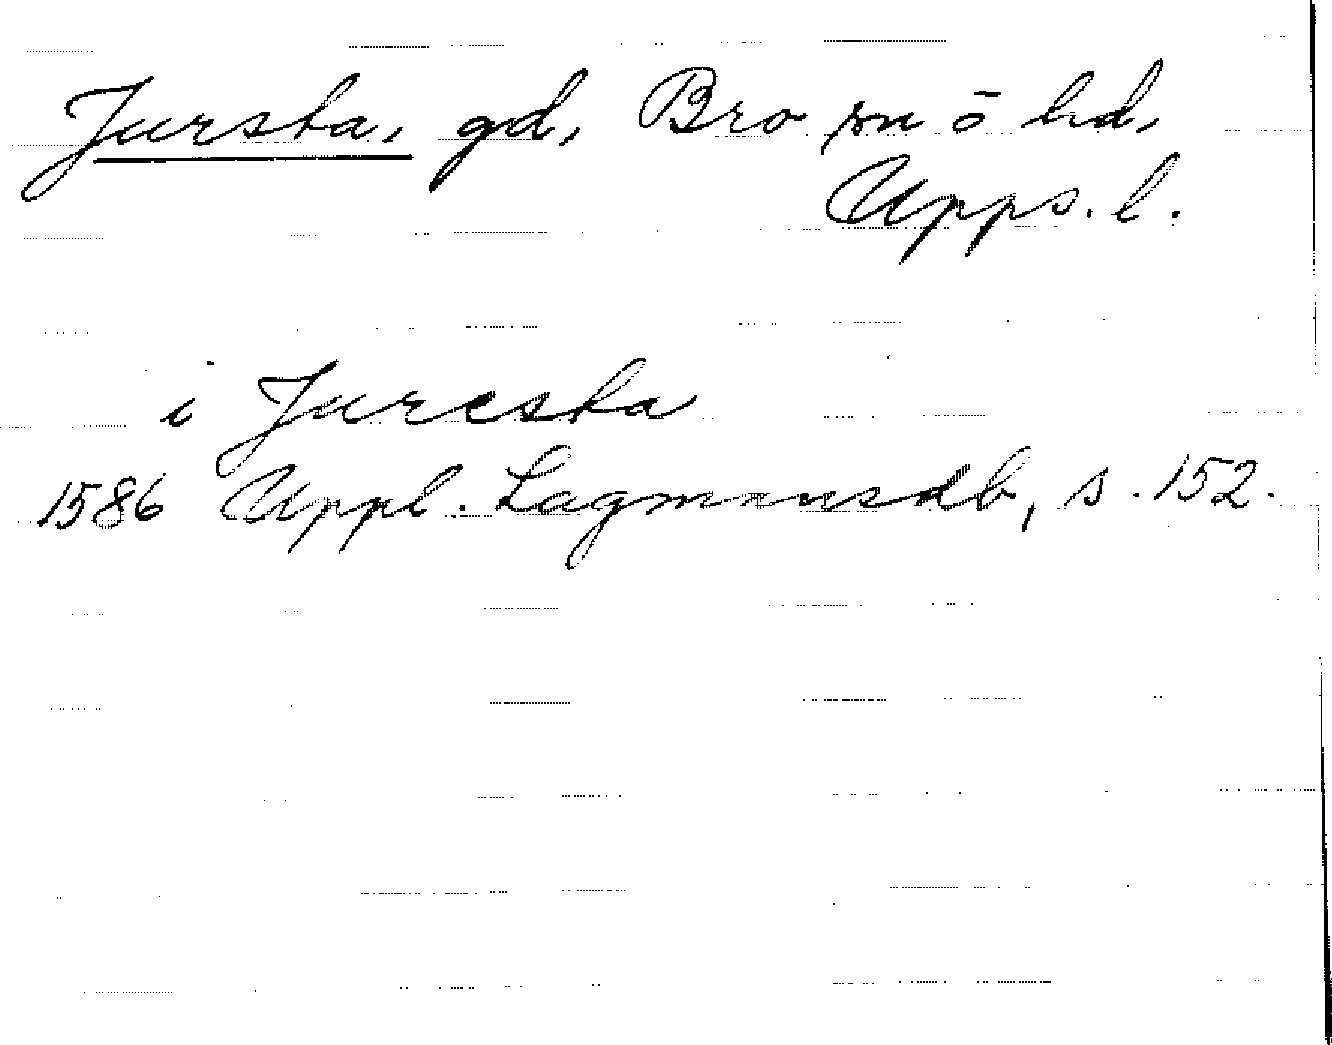 Jursta, gd, Bro sn ō hd,
Upps. l.
i Juresta
1586 Uppl. Lagmansdb, s. 152.